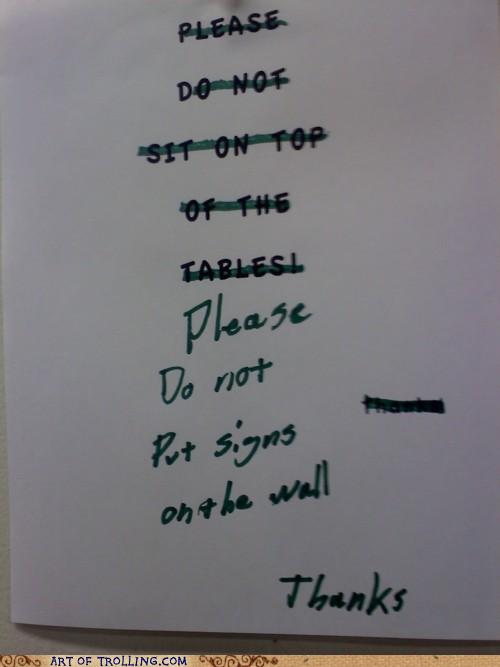 PLEASE
DO NOT
SIT ON TOP
OF THE
TABLES!
Please
Do not
Thanks
Put signs
on the wall
Thanks
ART OF TROLLING.COM